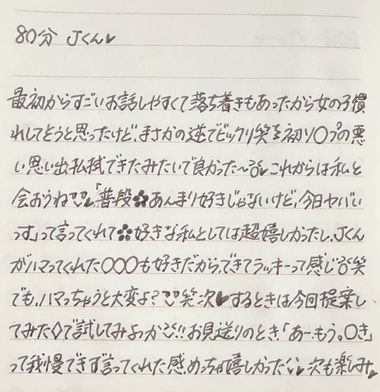 80分 Jくん♥
最初からすごいお話しやすくて落ち着きもあったから女の子慣
れしてそうと思ったけど、まさかの逆でビックリ笑 初ソ〇プの悪
い思い出払拭できたみたいで良かった〜 これからは私と
会おうね♥「普段✿あんまり好きじゃないけど、今日ヤバい
っす」って言ってくれて✿好きな私としては超嬉しかったし、Jくん
がハマってくれた〇〇〇も好きだから、できてラッキーって感じ 笑
でも、ハマっちゃうと大変よ? 笑 次♥するときは今回提案し
てみた◇で試してみよっか!! お見送りのとき「あーもう。〇き」
って我慢できず言ってくれた感めっちゃ嬉しかった♥次も楽しみ♥